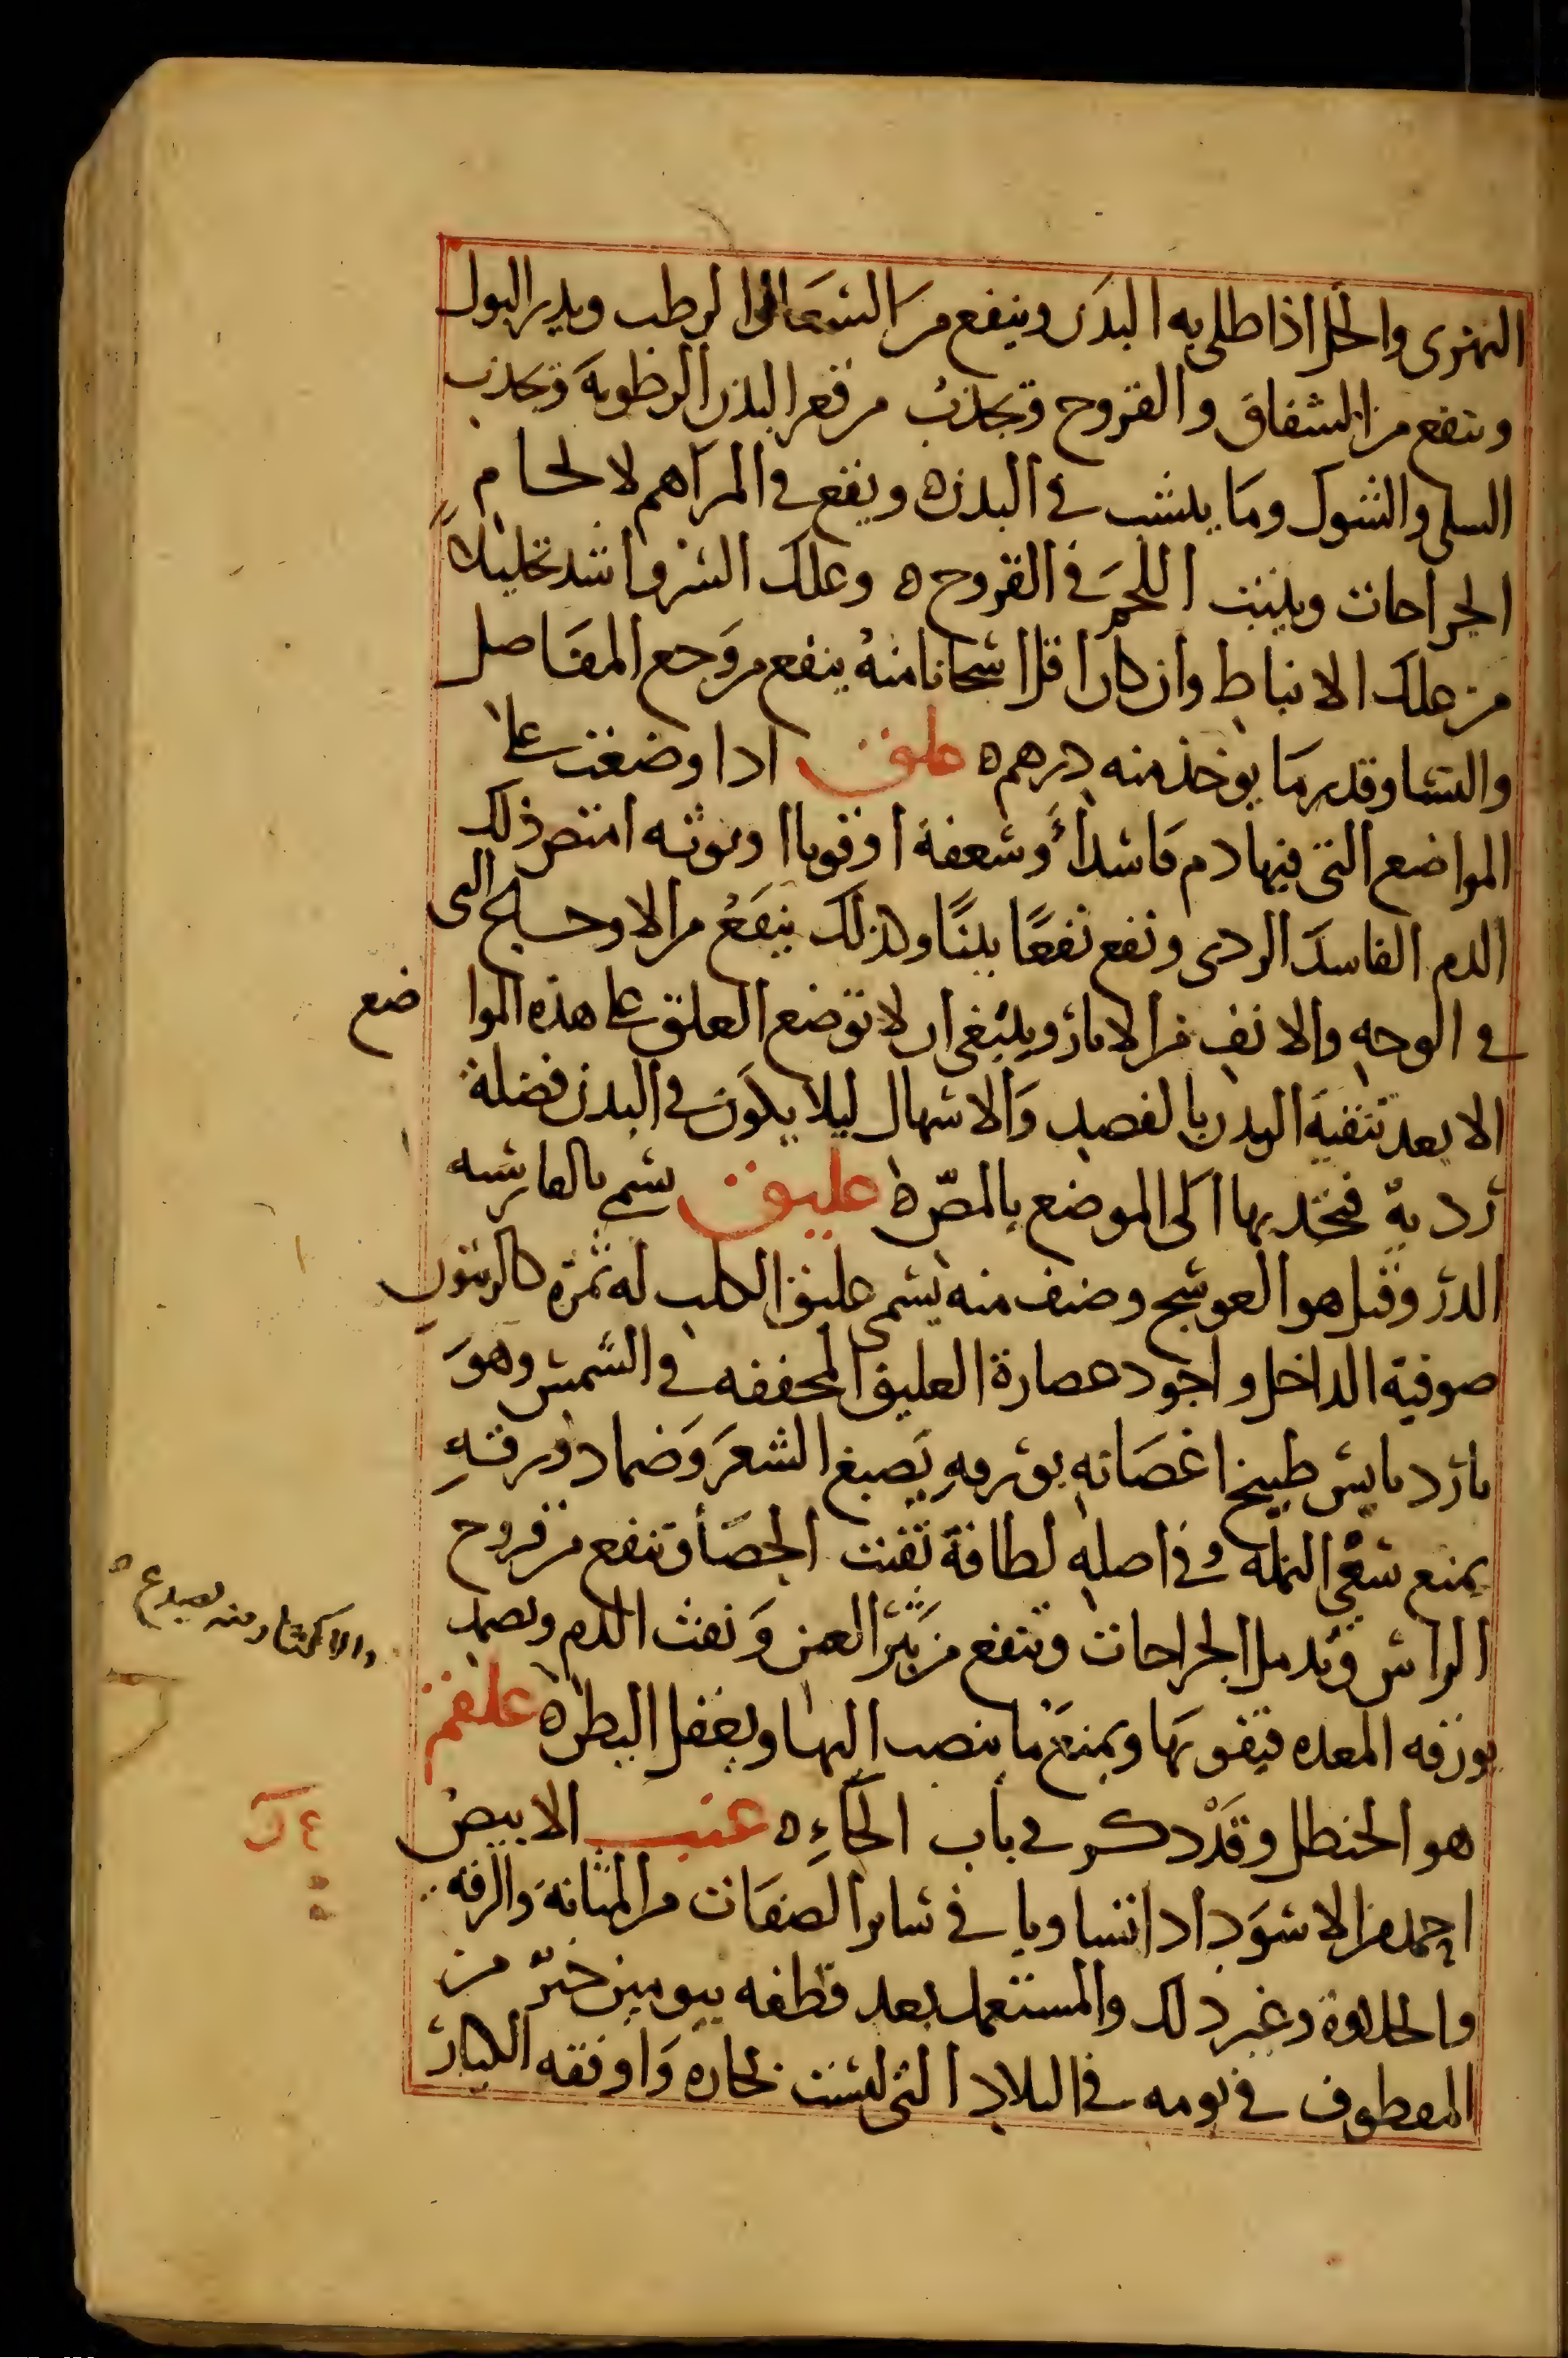 النهرى والخل اذا طلى به البدن وينفع من السعال الرطب ويدر البول
وينفع من الشقاق والقروح ويجذب من قعر البدن الرطوبة ويجذب
السلى والشوك وما ينشب في البدن ه ويقع في المراهم لالحام
الجراحات وينبت اللحم في القروح ه وعلك السرو اشد تحليلا
من علك الانباط وان كان اقل اسخانا منه ينفع من وجع المفاصل
والنسا وقدر ما يوخذ منه درهم ه علق اذا وضعت على
المواضع التي فيها دم فاسد او سعفة او قوبا او توثه امتص ذلك
الدم الفاسد الردى ونفع نفعا بينا وكذلك ينفع من الاوحـ التى
في الوجه والانف من الاثار وينبغى ان لا توضع العلق على هذه الموا ضع
الا بعد تنقية البدن بالفصد والاسهال ليلا يكون في البدن فضلة
ردية فيجذبها الى الموضع بالمص ه عليق يسمى بالفارسيه
الدر وقيل هو العوسج وصنف منه يسمى عليق الكلب له ثمره كالزيتون
صوفية الداخل واجود عصارة العليق المجففه في الشمس وهو
بارد يابس طبيخ اغصانه بورقه يصبغ الشعر وضماد ورقه
يمنع سعي النمله وفي اصله لطافة تفتت الحصا وتنفع من قروح
الراس وتدمل الجراحات وتنفع من نتو العين ونفث الدم وتضمد
بورقه المعده فيقويها ويمنع ما ينصب اليها ويعقل البطن ه علقم
هو الحنظل وقد ذكر في باب الحاء ه عنب الابيض
احمد من الاسود اذا تساويا في سائر الصفات من المتانة والرقه
والحلاوة وغير ذلك والمستعمل بعد قطفه بيومين خير من
المقطوف في يومه في البلاد التي ليست بحاره واوفقه الكبار
والاكثار منه يصدع ه